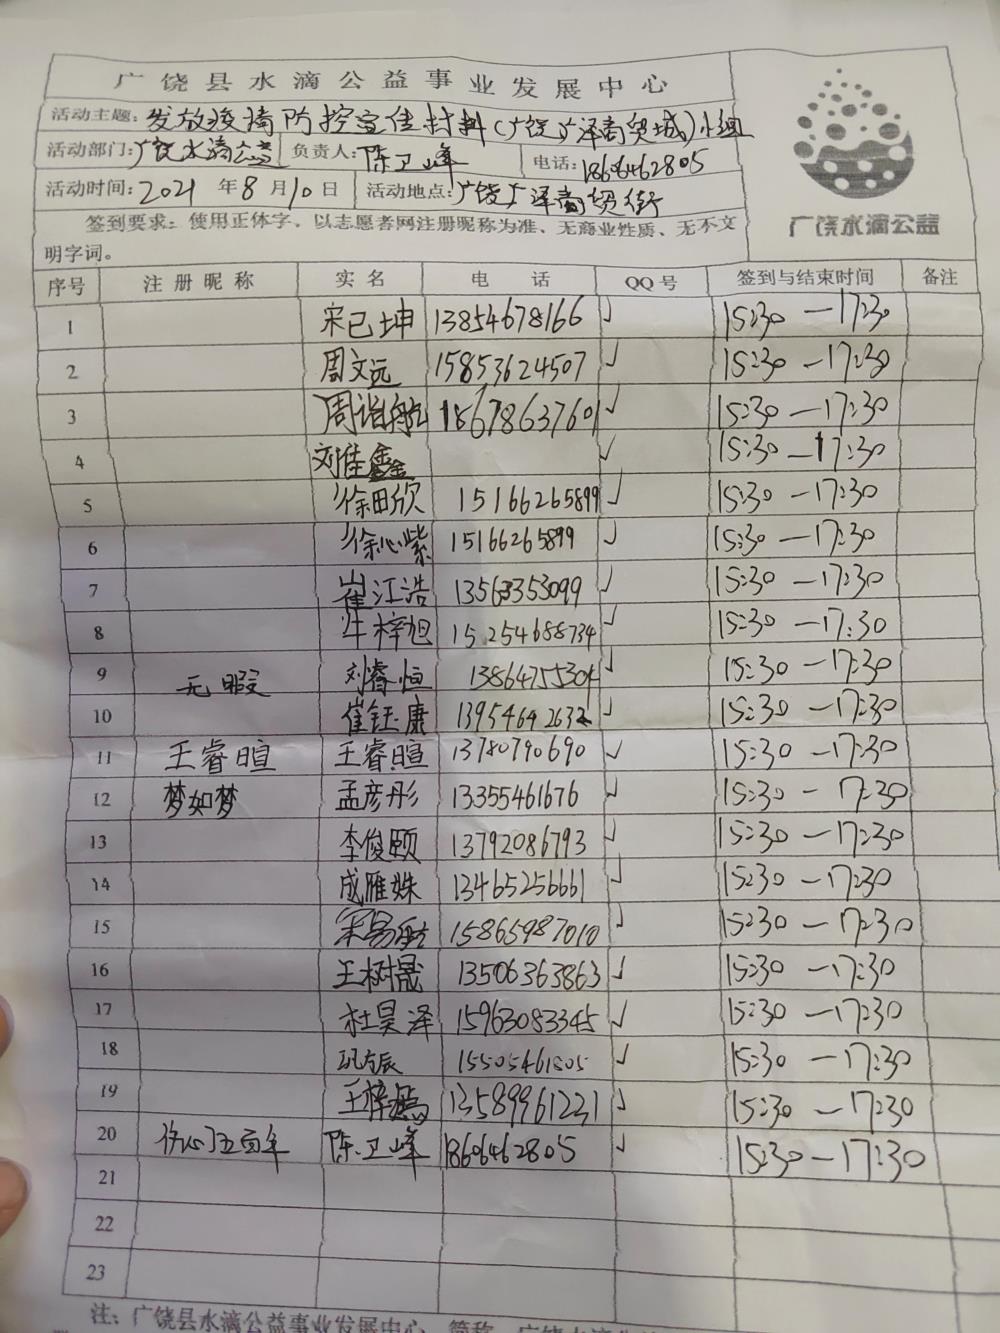 广饶县水滴公益事业发展中心
活动主题: 发放疫情防控宣传材料(广饶广泽商贸城)小组
活动部门: 广饶水滴公益 负责人: 陈卫峰 电话: 18606462805
活动时间: 2021 年 8 月 10 日 活动地点: 广饶广泽商贸街
签到要求: 使用正体字、以志愿者网注册昵称为准、无商业性质、无不文
明字词。
广饶水滴公益
序号 注册昵称 实名 电话 QQ号 签到与结束时间 备注
1 宋已坤 13854678166 ✓ 15:30 — 17:30
2 周文远 15853624507 ✓ 15:30 — 17:30
3 周诣航 18678637601 ✓ 15:30 — 17:30
4 刘佳鑫 ✓ 15:30 — 17:30
5 徐田欣 15166265899 ✓ 15:30 — 17:30
6 徐心紫 15166265899 ✓ 15:30 — 17:30
7 崔江浩 13563353099 ✓ 15:30 — 17:30
8 牛梓旭 15254688734 ✓ 15:30 — 17:30
9 无暇 刘睿恒 13864755304 ✓ 15:30 — 17:30
10 崔钰康 13954642632 ✓ 15:30 — 17:30
11 王睿暄 王睿暄 13780790690 ✓ 15:30 — 17:30
12 梦如梦 孟彦彤 13355461676 ✓ 15:30 — 17:30
13 李俊颐 13792086793 ✓ 15:30 — 17:30
14 成雁姝 13465256661 ✓ 15:30 — 17:30
15 宋易航 15865987010 ✓ 15:30 — 17:30
16 王树晟 13506363863 ✓ 15:30 — 17:30
17 杜昊泽 15963083345 ✓ 15:30 — 17:30
18 15505461805 ✓ 15:30 — 17:30
19 王梓嫣 13589961231 ✓ 15:30 — 17:30
20 伤心了五百年 陈卫峰 18606462805 ✓ 15:30 — 17:30
21
22
23
注: 广饶县水滴公益事业发展中心